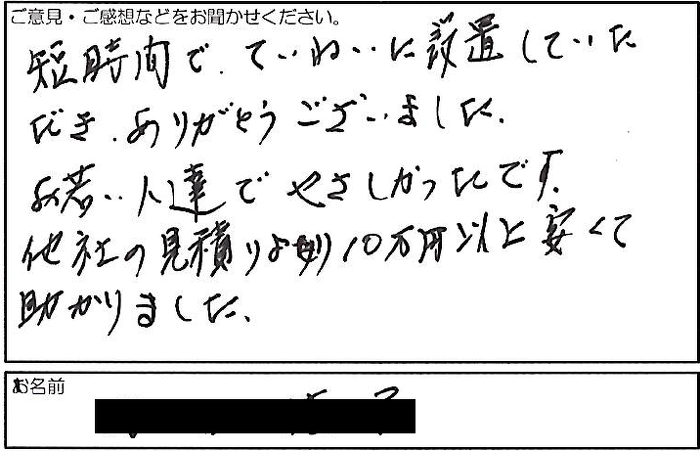 ご意見・ご感想などをお聞かせください。
短時間で、ていねいに設置していた
だき、ありがとうございました。
お若い人達でやさしかったです。
他社の見積りより10万円以上安くて
助かりました。
お名前